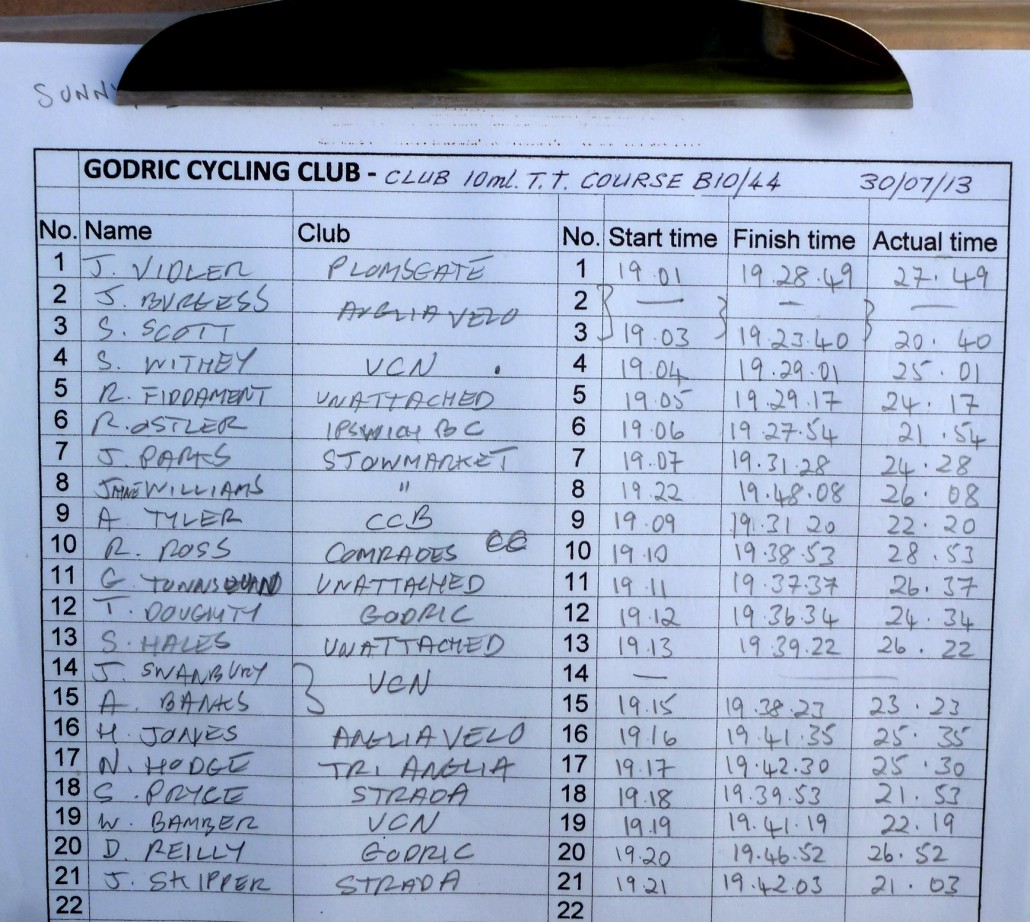 SUNNY
GODRIC CYCLING CLUB - CLUB 10ml. T.T. COURSE B10/44 30/07/13
No. Name Club No. Start time Finish time Actual time
1 J. VIDLER PLOMSGATE 1 19.01 19.28.49 27.49
2 J. BURGESS 2 — — —
ANGLIA VELO
3 S. SCOTT 3 19.03 19.23.40 20.40
4 S. WITHEY VCN 4 19.04 19.29.01 25.01
5 R. FIDDAMENT UNATTACHED 5 19.05 19.29.17 24.17
6 R. OSTLER IPSWICH BC 6 19.06 19.27.54 21.54
7 J. PARKS STOWMARKET 7 19.07 19.31.28 24.28
8 WILLIAMS " 8 19.22 19.48.08 26.08
9 A. TYLER CCB 9 19.09 19.31 20 22.20
10 R. ROSS COMRADES CC 10 19.10 19.38.53 28.53
11 G. 11 UNATTACHED 11 19.11 19.37.37 26.37
12 T. DOUGHTY GODRIC 12 19.12 19.36.34 24.34
13 S. HALES UNATTACHED 13 19.13 19.39.22 26.22
14 J. SWANBURY 14 —
VCN
15 A. BANKS 15 19.15 19.38.23 23.23
16 H. JONES ANGLIA VELO 16 19.16 19.41.35 25.35
17 N. HODGE TRI ANGLIA 17 19.17 19.42.30 25.30
18 S. PRYCE STRADA 18 19.18 19.39.53 21.53
19 W. BAMBER VCN 19 19.19 19.41.19 22.19
20 D. REILLY GODRIC 20 19.20 19.46.52 26.52
21 J. SKIPPER STRADA 21 19.21 19.42.03 21.03
22 22